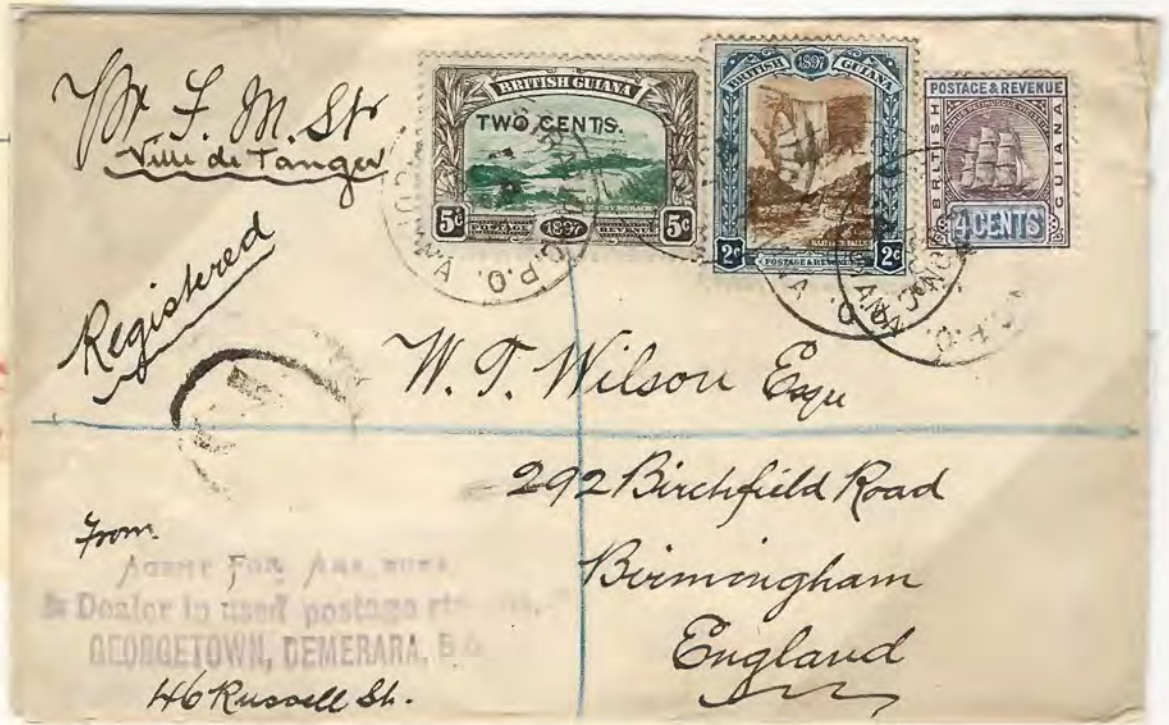 F. M. Str
Ville de Tanger
Registered
BRITISH GUIANA
TWO CENTS.
5c POSTAGE 1897 REVENUE 5c
BRITISH 1897 GUIANA
KAIETEUR FALLS
2c POSTAGE & REVENUE 2c
POSTAGE & REVENUE
BRITISH
GUIANA
4 CENTS
G.P.O.
W. T. Wilson Esqr
292 Birchfield Road
Birmingham
England
From
Agent For
& Dealer in used postage
GEORGETOWN, DEMERARA, B.G.
46 Russell St.